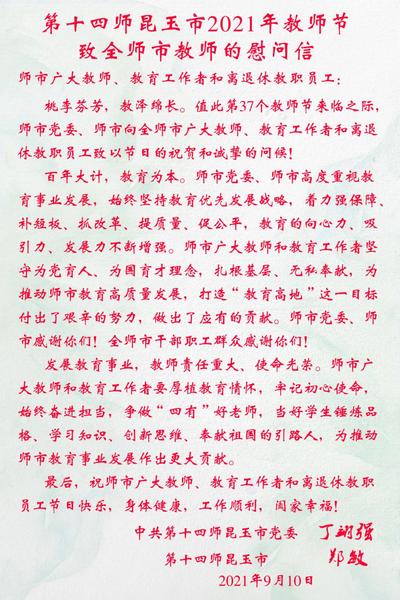 第十四师昆玉市2021年教师节
致全师市教师的慰问信
师市广大教师、教育工作者和离退休教职员工：
桃李芬芳，教泽绵长。值此第37个教师节来临之际，
师市党委、师市向全师市广大教师、教育工作者和离退
休教职员工致以节日的祝贺和诚挚的问候！
百年大计，教育为本。师市党委、师市高度重视教
育事业发展，始终坚持教育优先发展战略，着力强保障、
补短板、抓改革、提质量、促公平，教育的向心力、吸
引力、发展力不断增强。师市广大教师和教育工作者坚
守为党育人、为国育才理念，扎根基层、无私奉献，为
推动师市教育高质量发展，打造“教育高地”这一目标
付出了艰辛的努力，做出了应有的贡献。师市党委、师
市感谢你们！全师市干部职工群众感谢你们！
发展教育事业，教师责任重大、使命光荣。师市广
大教师和教育工作者要厚植教育情怀，牢记初心使命，
始终奋进担当，争做“四有”好老师，当好学生锤炼品
格、学习知识、创新思维、奉献祖国的引路人，为推动
师市教育事业发展作出更大贡献。
最后，祝师市广大教师、教育工作者和离退休教职
员工节日快乐，身体健康，工作顺利，阖家幸福！
中共第十四师昆玉市党委 丁翊强
第十四师昆玉市 郑敏
2021年9月10日